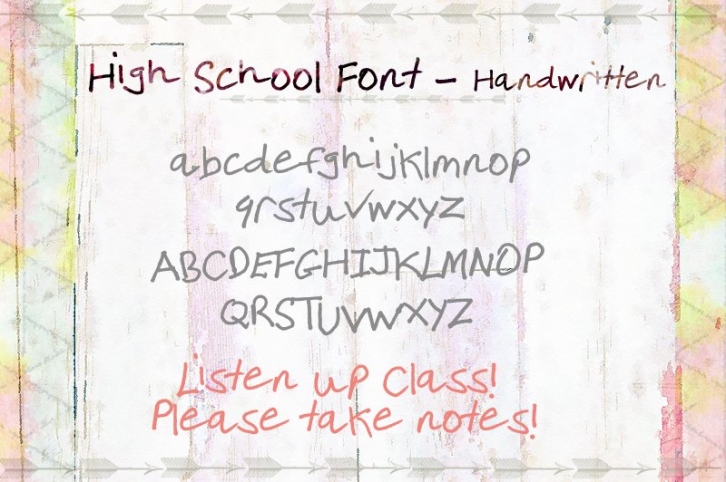 High School Font - Handwritten
abcdefghijklmnop
qrstuvwxyz
ABCDEFGHIJKLMNOP
QRSTUVWXYZ
Listen up Class!
Please take notes!